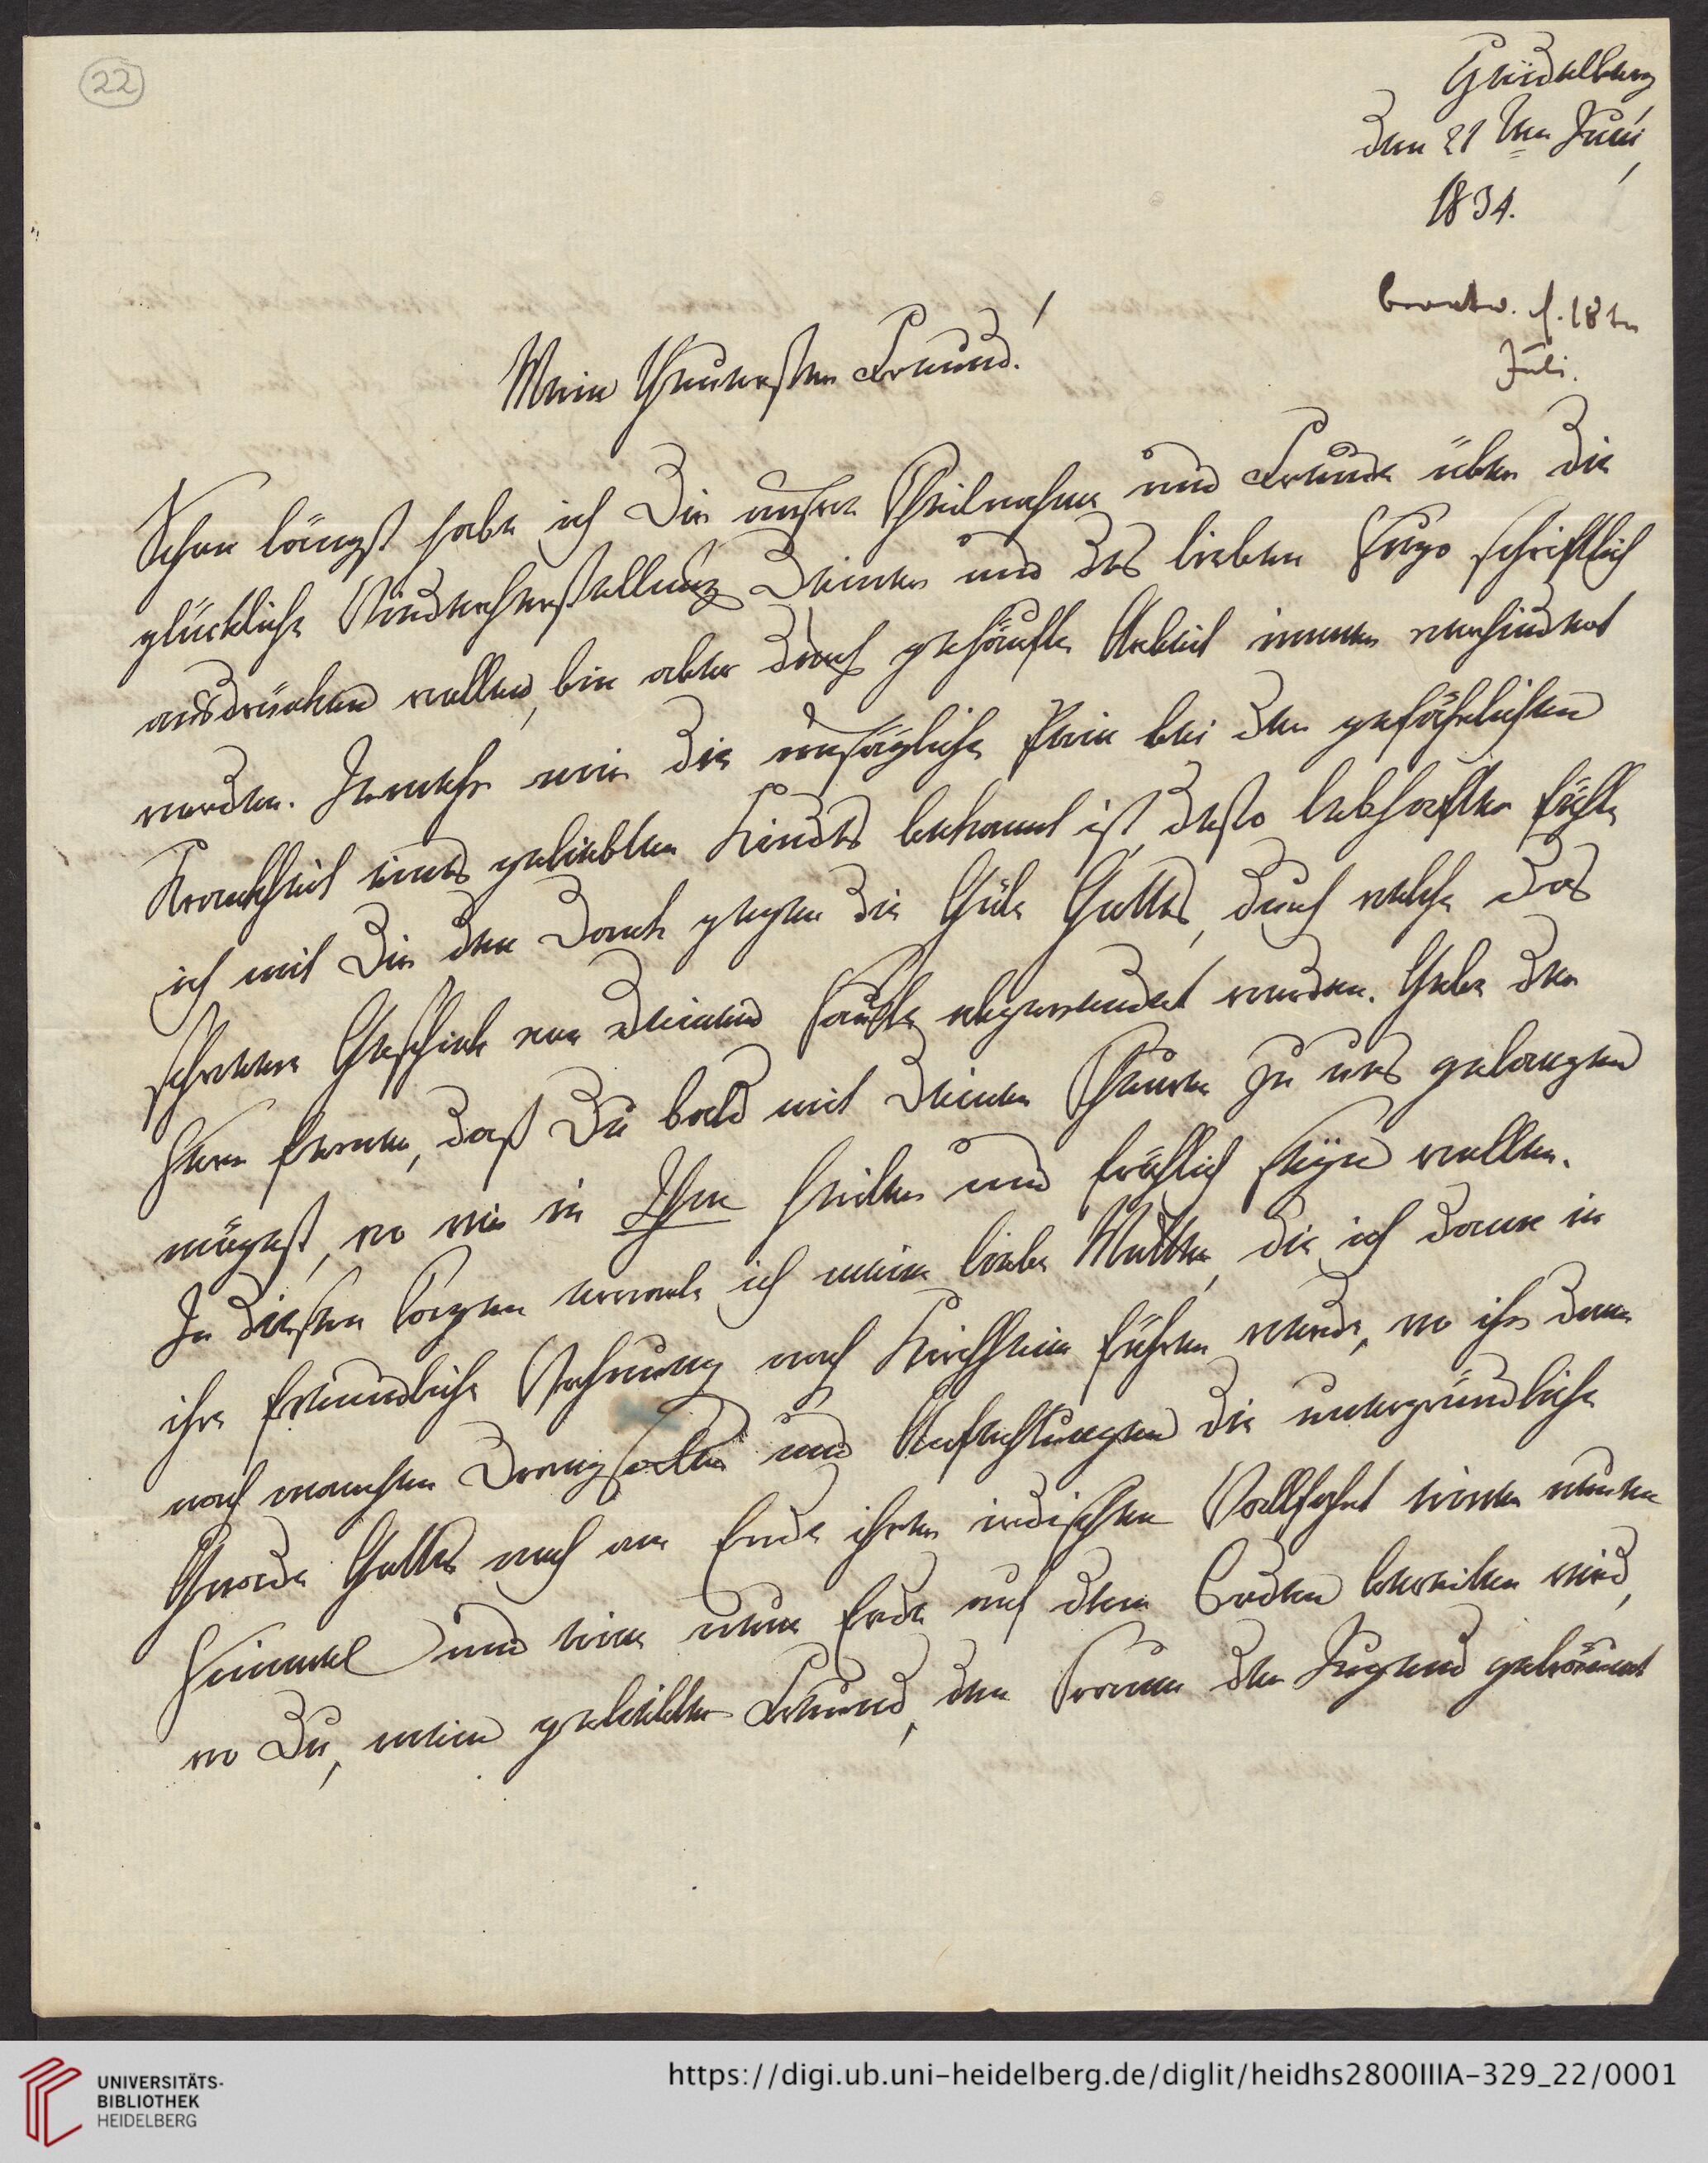 22
Heidelberg
den 21 ten Juni
1834.
beantw. d. 18 tn
Juli.
Mein Theuerster Freund!
Schon längst habe ich Dir unsere Theilnahme und Freude über die
glückliche Wiederherstellung Deines und des lieben Hugo schriftlich
ausdrücken wollen, bin aber durch gehäufte Arbeit immer verhindert
worden. Jemehr mir die unsägliche Pein bei der gefährlichen
Krankheit eines geliebten Kindes bekannt ist, desto lebhafter fühlte
ich mit Dir den Dank gegen die Güte Gottes, durch welche das
schwere Geschick von Deinem Haupte abgewendet worden. Gebe der
Herr ferner, daß Du bald mit Deinen Theuren zu uns gelangen
mögest, wo wir in Ihm heiter und fröhlich seyn wollen.
In diesen Tagen erwarte ich meine liebe Mutter, die ich dann in
ihre freundliche Wohnung nach Kirchheim führen werde, wo ihr dann
nach manchen Drangsalen und Anfechtungen die unergründliche
Gnade Gottes noch am Ende ihrer irdischen Wallfahrt einen neuen
Himmel und eine neue Erde auf dem Boden bereiten wird,
wo Du, mein geliebter Freund, den Traum der Jugend geträumt
UNIVERSITÄTS-
BIBLIOTHEK
HEIDELBERG
https://digi.ub.uni-heidelberg.de/diglit/heidhs2800IIIA-329_22/0001